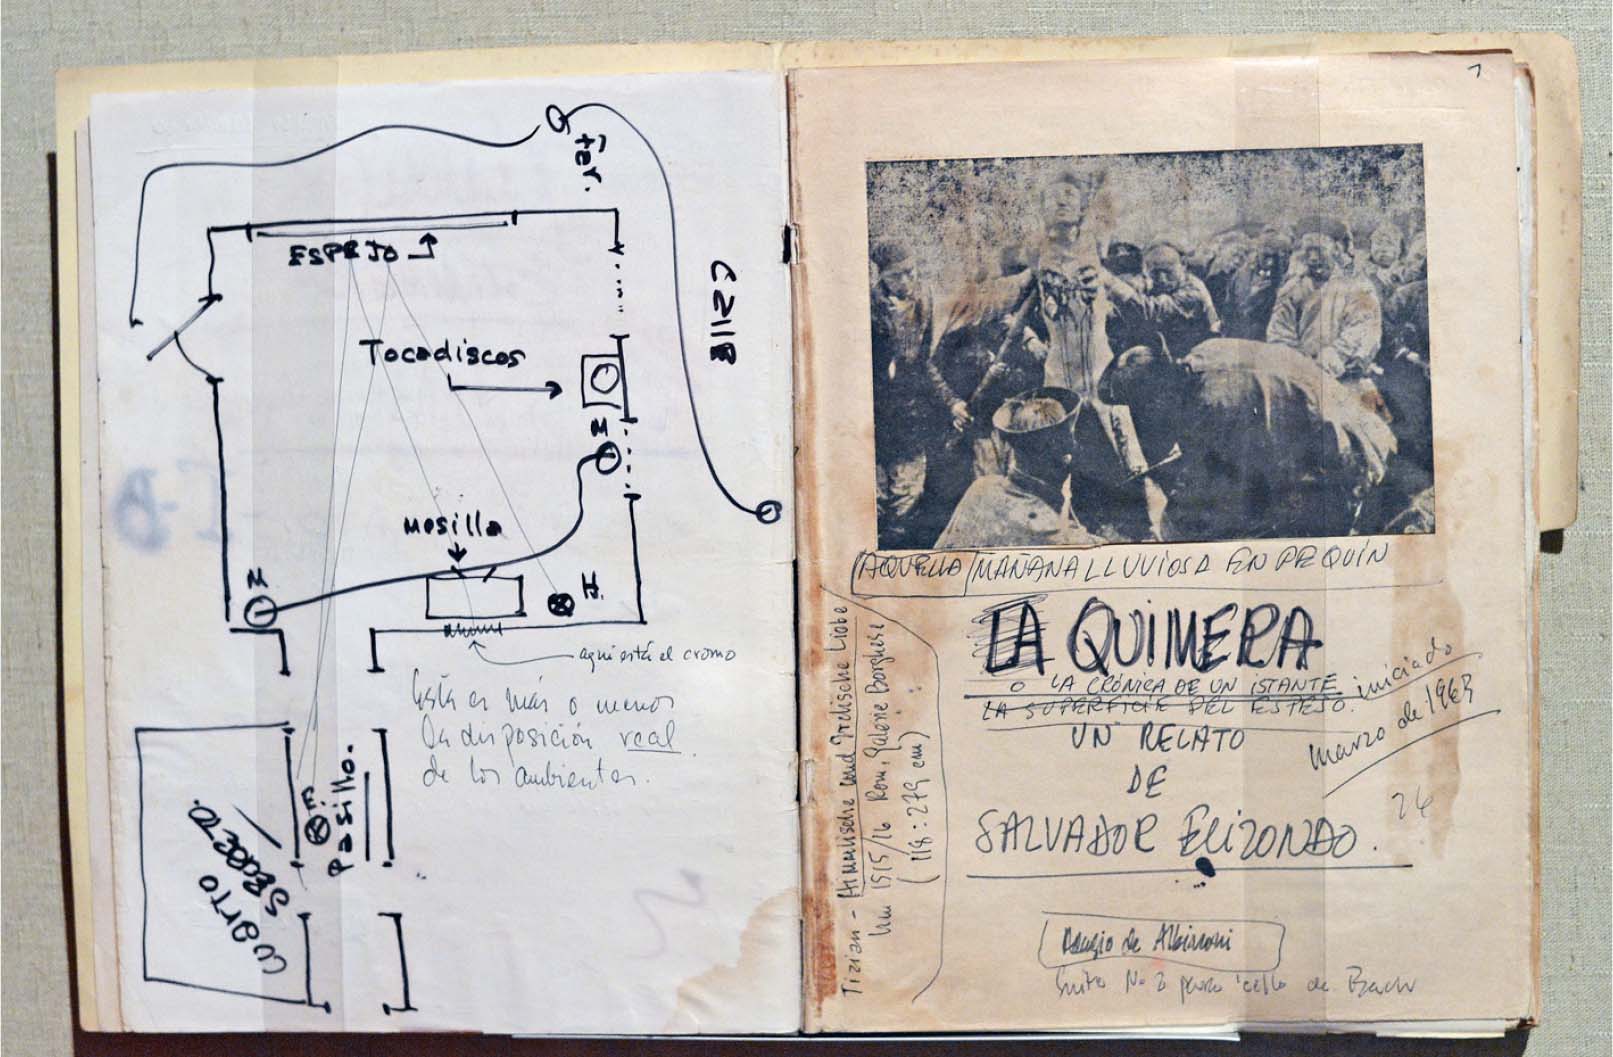 ter.
ESPEJO
Tocadiscos
CALLE
M
Mesilla
M
H.
ahora
aquí está el cromo
Esta es más o menos
la disposición real
de los ambientes.
Pasillo.
E.
CUARTO
SECRETO.
1
AQUELLA MAÑANA LLUVIOSA EN PEQUIN
LA QUIMERA
O LA CRÓNICA DE UN ISTANTE
LA SUPERFICIE DEL ESPEJO.
iniciado
marzo de 1963
UN RELATO
DE
SALVADOR ELIZONDO.
24
Tizian - Himmlische und Irdische Liebe
Um 1515/16 Rom, Galerie Borghese
(118:279 cm)
Adagio de Albinoni
Suite No 2 para 'cello de Bach